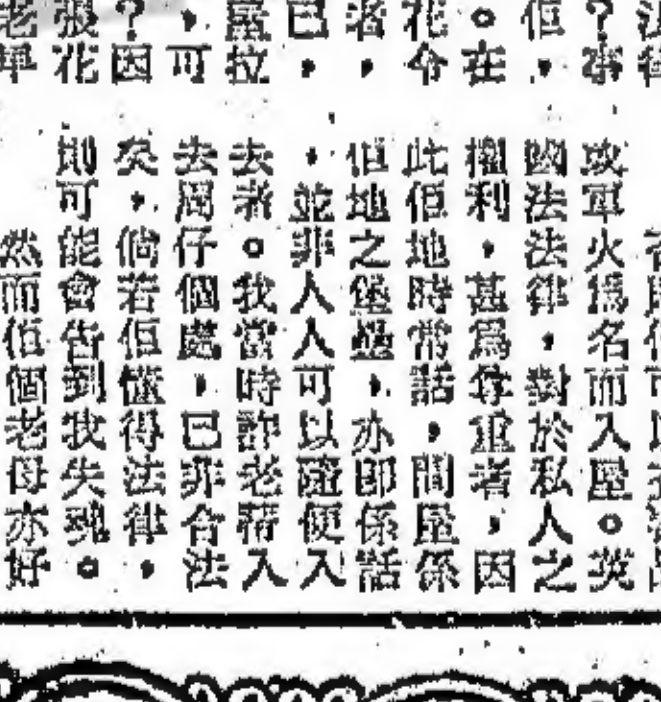 法律
？事
佢，
。在
花。今
者，
已，
屋拉
，可
？因
摄花
老早
或軍火爲名而入屋。英
國法法律，對於私人之
權利，甚爲尊重者，因
此佢地時常話，間屋係
佢地之堡壘，亦即係話
，並非人人可以隨便入
去者。我當時詐老藉入
去周仔個處，已非合法
矣，倘若佢懂得法律，
則可能會告到我失魂。
然而佢個老母亦好